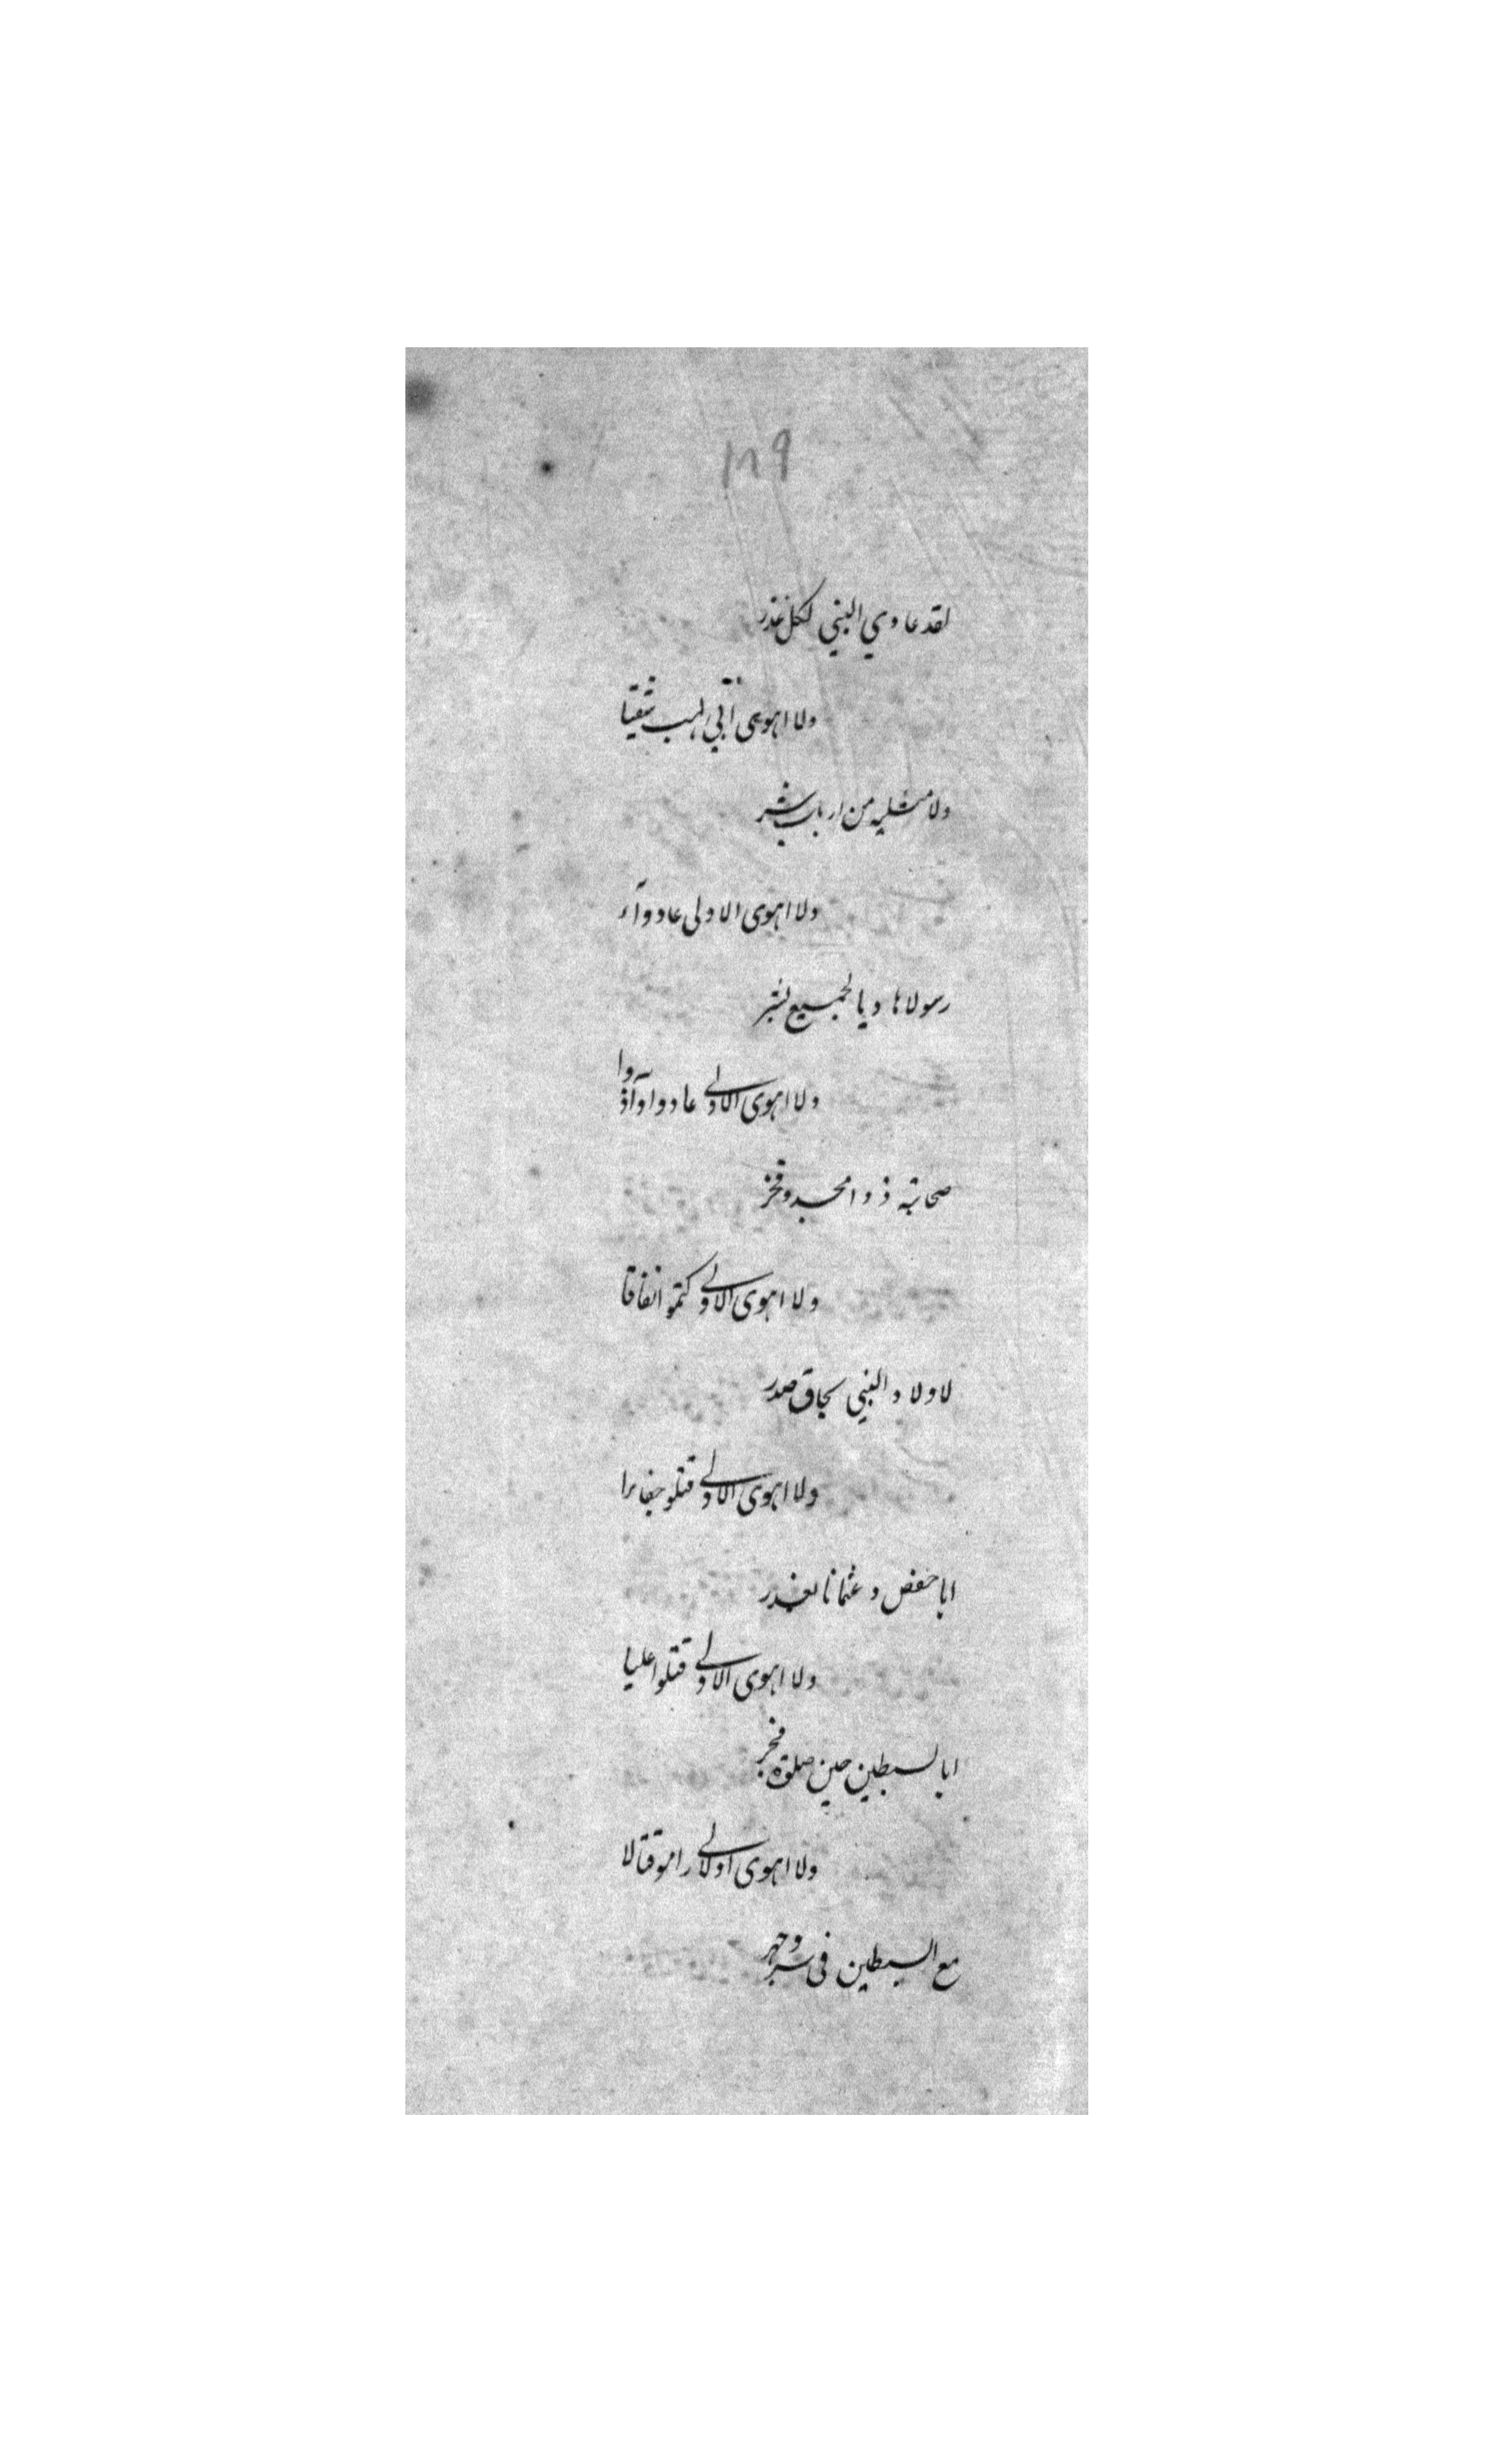 ١٨٩
لقد عادي النبي لكل غدر
ولا اهوى ابي لهب شقيا
ولا مثليه من ارباب شر
ولا اهوى الاولى عادوا
رسولا هاديا لجميع بشر
ولا اهوى الاولى عادوا وآذوا
صحابته ذووا مجد وفخر
ولا اهوى الاولى كتموا نفاقا
لاولاد النبي بحاق صدر
ولا اهوى الاولى قتلو جفايرا
ابا حفص وعثمانا بغدر
ولا اهوى الاولى قتلوا عليا
ابا لسبطين حين صلوة فجر
ولا اهوى اولى رامو قتالا
مع السبطين في سر وجهر